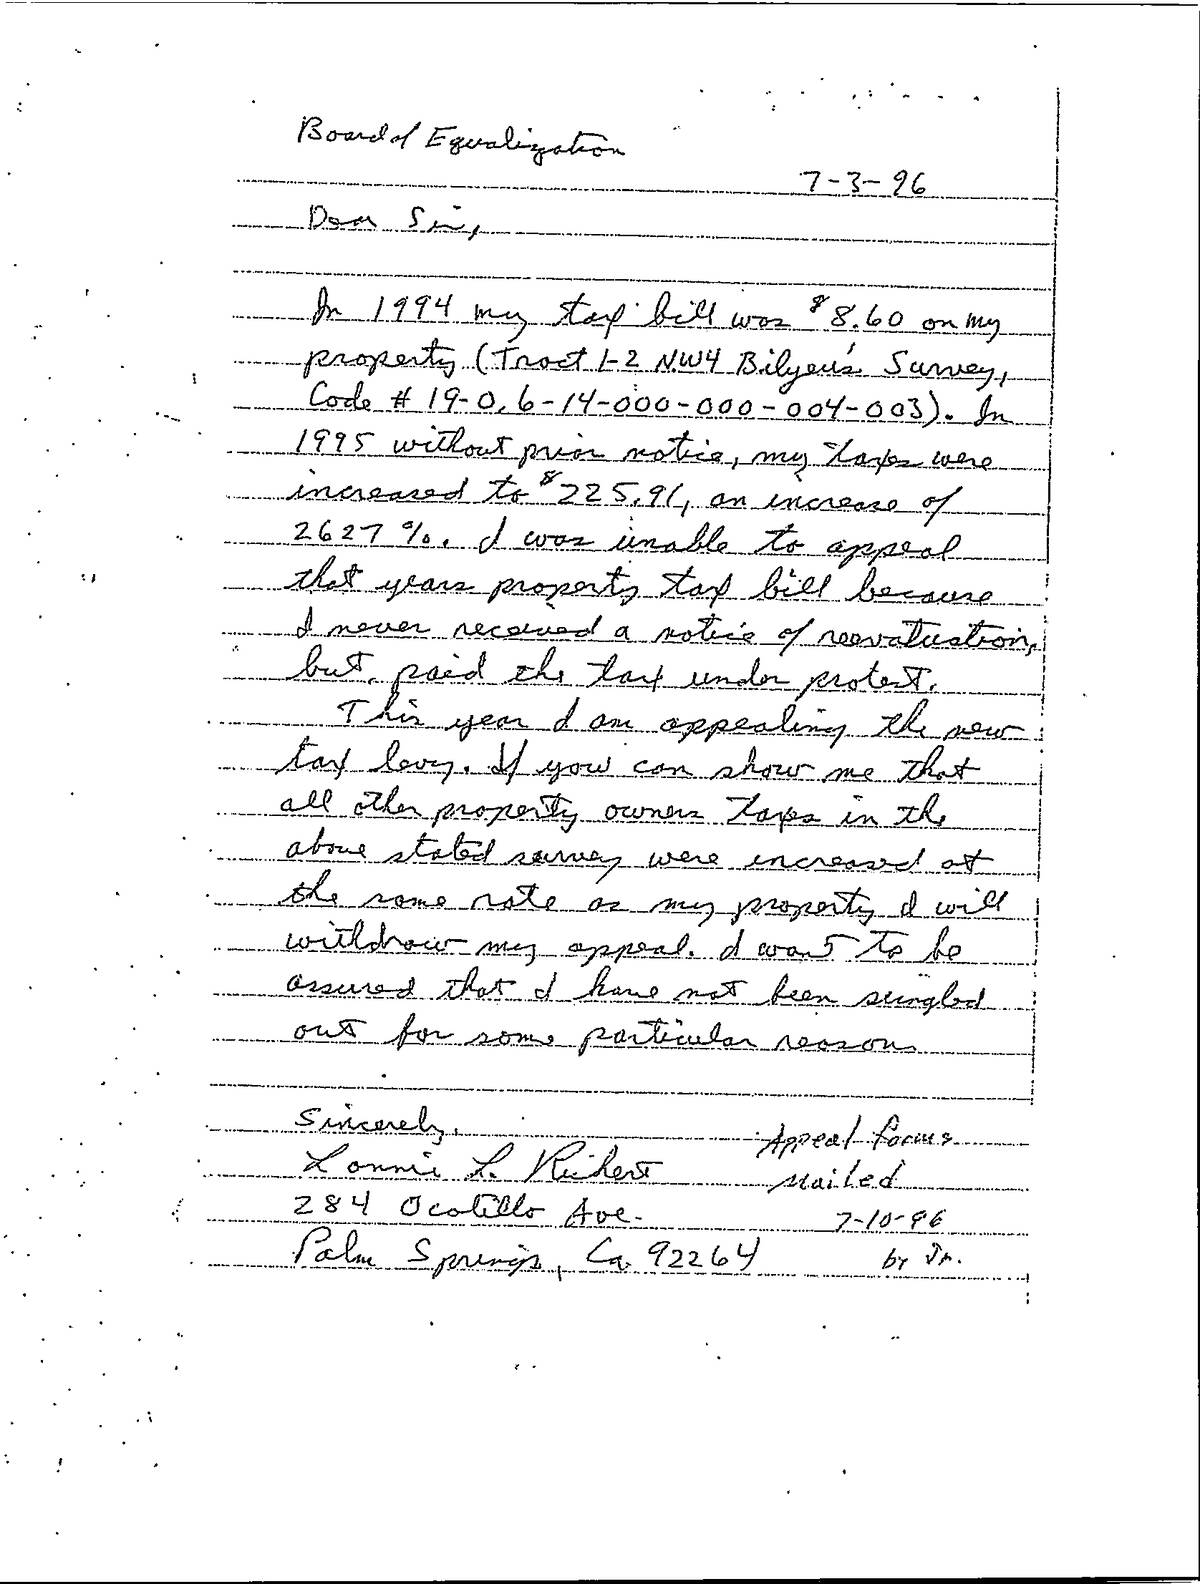 Board of Equalization
7-3-96
Dear Sir,
In 1994 my tax bill was $8.60 on my
property (Tract 1-2 NW4 Bilyeu's Survey,
Code # 19-0.6-14-000-000-004-003). In
1995 without prior notice, my taxes were
increased to $225.91, an increase of
2627%. I was unable to appeal
that years property tax bill because
I never received a notice of reevaluation,
but paid the tax under protest.
This year I am appealing the new
tax levy. If you can show me that
all other property owners taxes in the
above stated survey were increased at
the same rate as my property I will
withdraw my appeal. I want to be
assured that I have not been singled
out for some particular reason
Sincerely,
Appeal forms
Lonnie L. Richert
mailed
284 Ocotillo Ave.
7-10-96
Palm Springs, Ca 92264
by Jr.